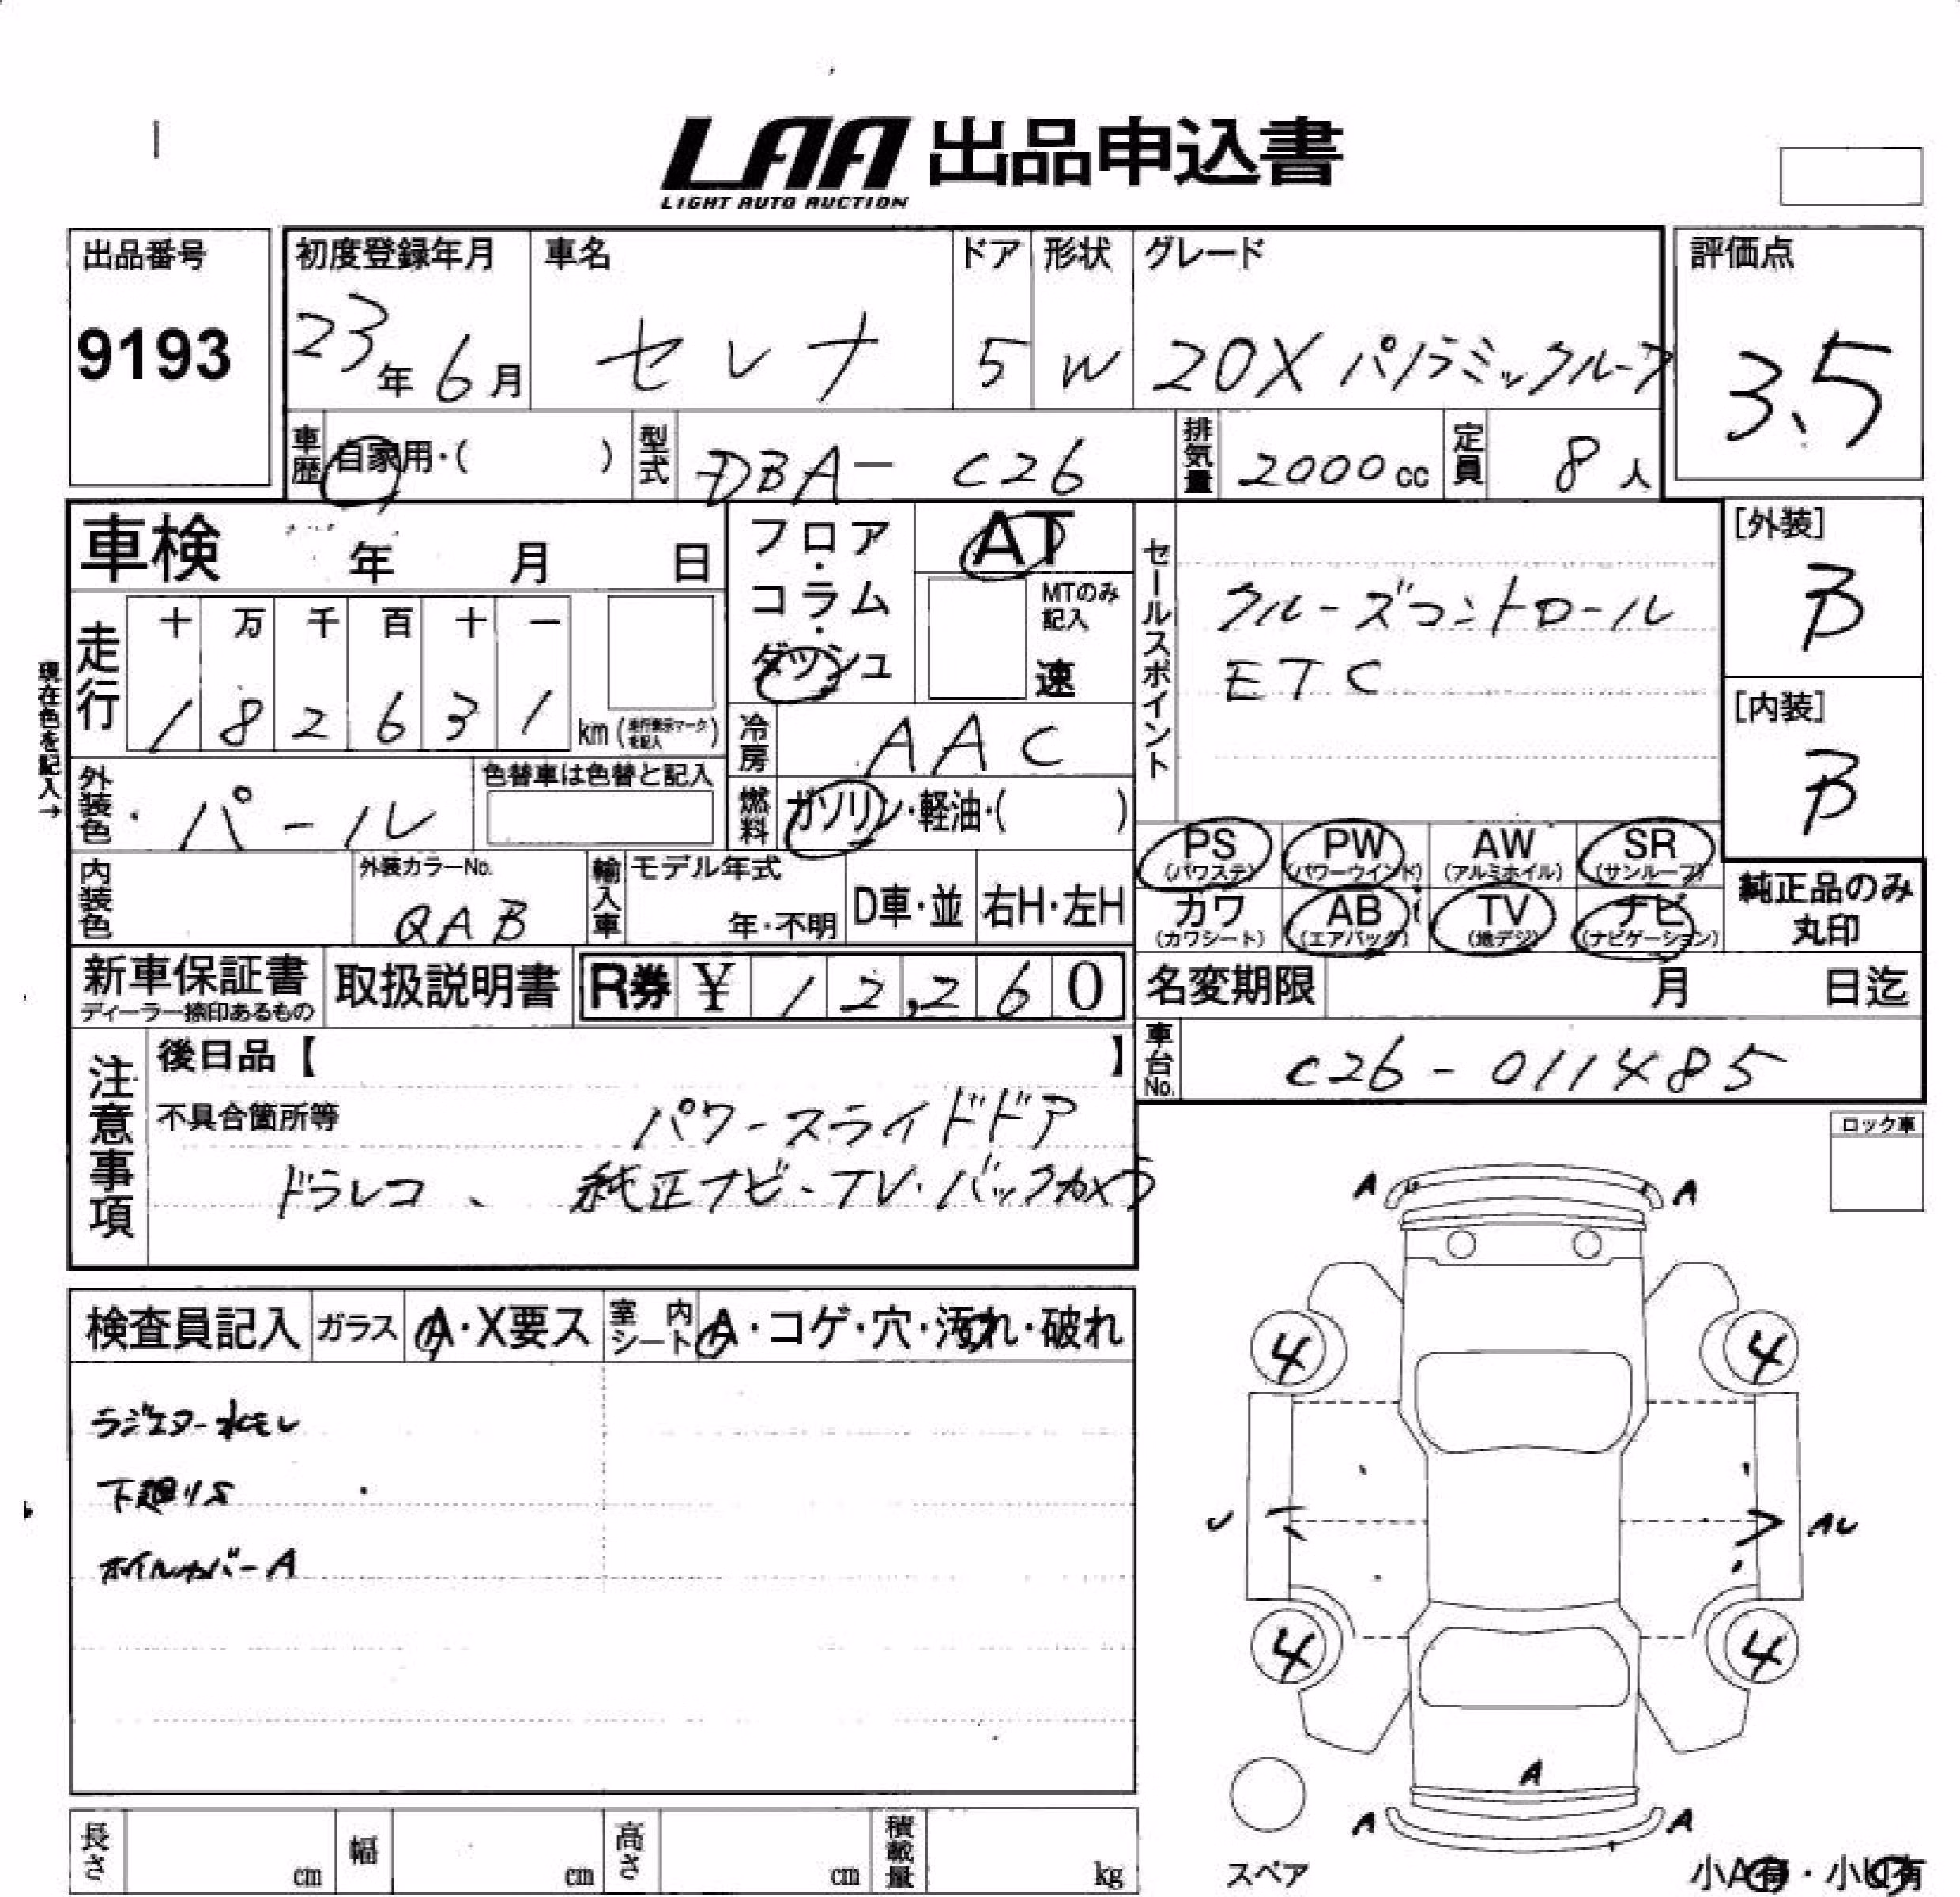 LAA 出品申込書
LIGHT AUTO AUCTION
出品番号
9193
初度登録年月
23年6月
車名
セレナ
ドア
5
形状
W
グレード
20X パノラミックルーフ
評価点
3.5
車歴
自家用・( )
型式
DBA-C26
排気量
2000cc
定員
8人
車検 年 月 日
走行
十 万 千 百 十 一
1 8 2 6 3 1 km
(走行表示マークを記入)
現在色を記入→
フロア・コラム・ダッシュ
AT
MTのみ記入
速
セールスポイント
クルーズコントロール
ETC
[外装]
B
[内装]
B
冷房
AAC
燃料
ガソリン・軽油・( )
外装色
パール
色替車は色替と記入
内装色
外装カラーNo.
QAB
輸入車
モデル年式
年・不明
D車・並
右H・左H
PS (パワステ)
PW (パワーウインド)
AW (アルミホイル)
SR (サンルーフ)
カワ (カワシート)
AB (エアバッグ)
TV (地デジ)
ナビ (ナビゲーション)
純正品のみ丸印
新車保証書
ディーラー捺印あるもの
取扱説明書
R券 ¥ 12,260
名変期限 月 日迄
車台No.
C26-011485
注意事項
後日品【 】
不具合箇所等
パワースライドドア
ドラレコ、純正ナビ・TV・バックカメラ
ロック車
検査員記入
ガラス
A・X要ス
室内シート
A・コゲ・穴・汚れ・破れ
ラジエター水モレ
下廻りS
ホイルカバーA
A A
4 4
U AU
4 4
A
A A
スペア
小A有・小U有
長さ cm
幅 cm
高さ cm
積載量 kg